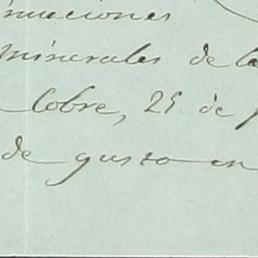 maciones
minerales de la
Cobre, 25 de
de gusto en